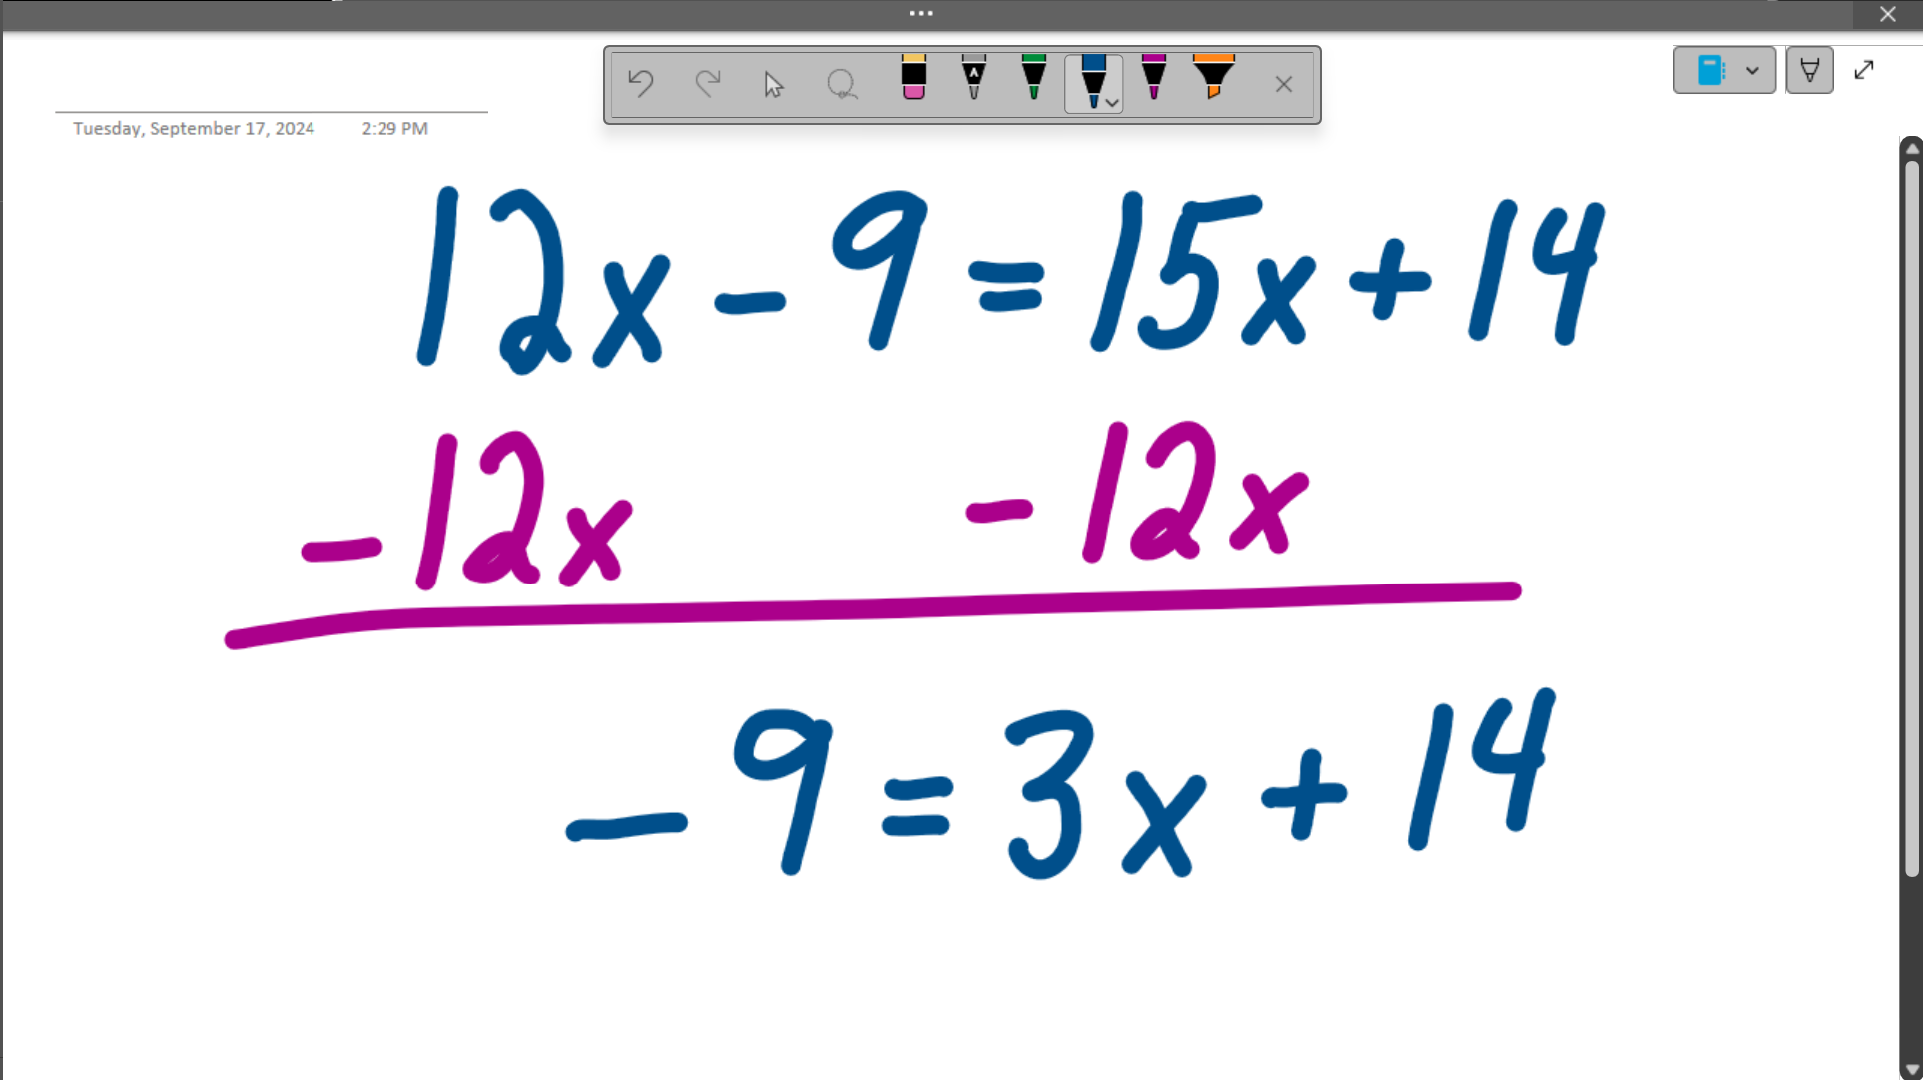 Tuesday, September 17, 2024 2:29 PM
12x - 9 = 15x + 14
-12x - 12x
- 9 = 3x + 14